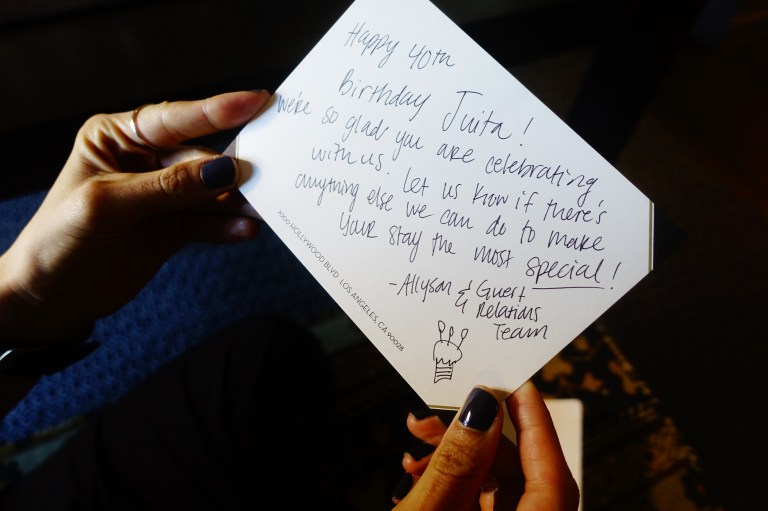 Happy 40th
Birthday Juita!
We're so glad you are celebrating
with us. Let us know if there's
anything else we can do to make
your stay the most special!
-Allyson & Guest
Relations
Team
7000 HOLLYWOOD BLVD LOS ANGELES, CA 90028